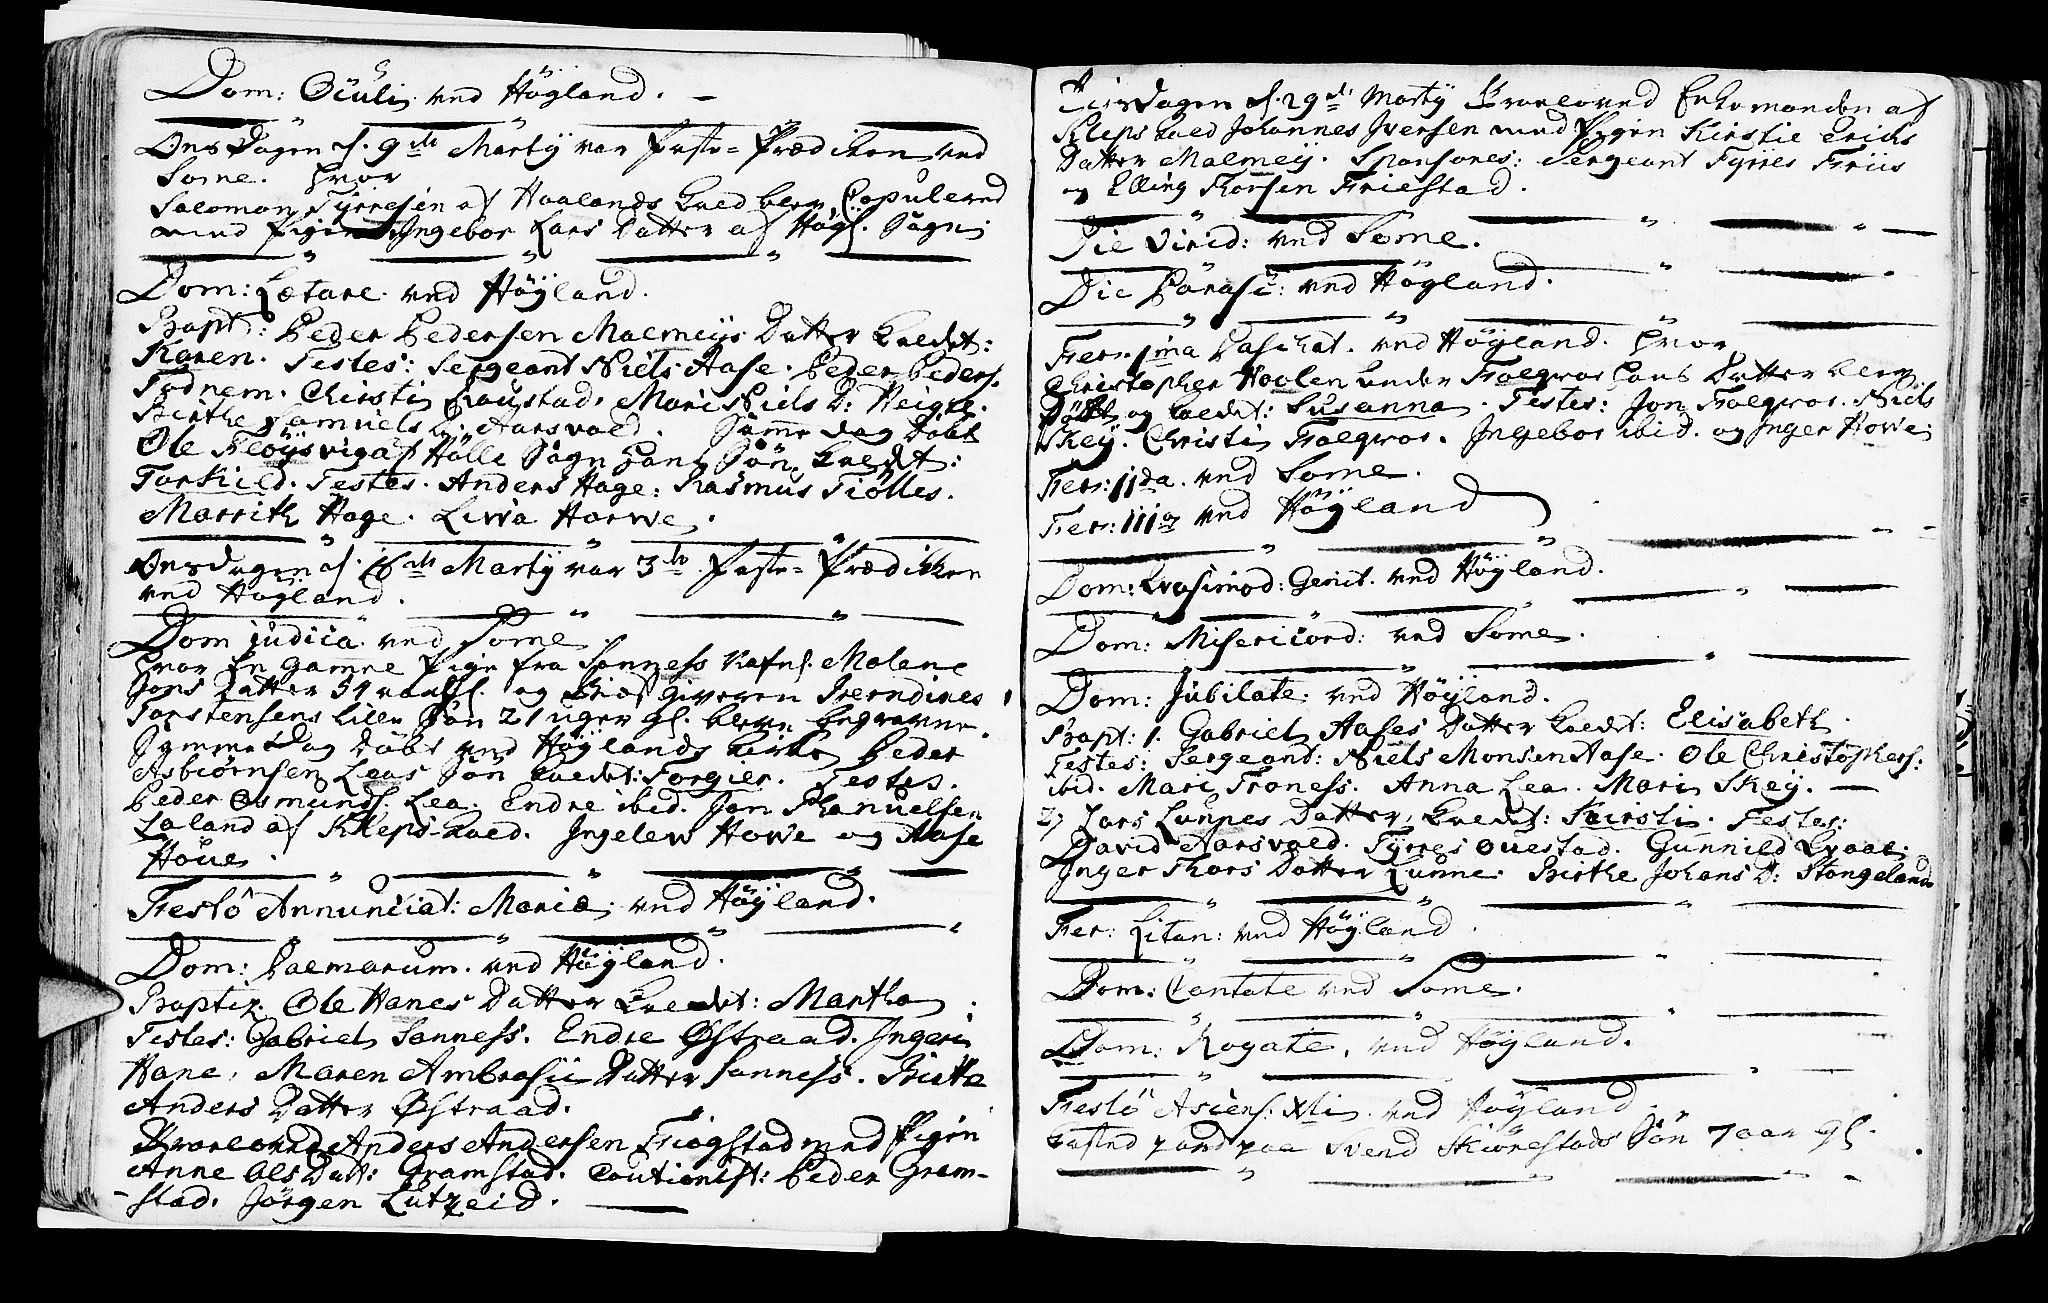 Dom: Oculi ved Høÿland.
Onsdagen d. 9de Martÿ var Faste-Prædiken ved
Some. hvor
Salomon Tÿrresen af Haalands Gield blev Copulered
med Pigen Ingebor Lars Datter af Høÿl. Sogn
Dom: Lætare ved Høÿland.
Bapt: Peder Pedersen Malmeÿs Datter kaldt:
Karen. Testes: Sergeant Niels Aase. Peder Peders.
Todnem. Christi Raustad. Mari Niels D:
Birthe Samuels D: Aarsvold. Samme dag Døbt
Ole Fløÿsvig af Hølle Sogn hans Søn kaldt:
Torkild. Testes. Anders Hage: Rasmus Tiølles.
Marrith Hage. Liwa Harwe.
Onsdagen d. 16de Martÿ var 3die Faste-Prædiken
ved Høÿland.
Dom judica ved Some.
hvor En gamne Pige fra Sanness Nafnl. Malene
Jons Datter 54 aar gl. og
Torstensens lille Søn 21 uger gl. bleve begravne.
Samme Dag døbt ved Høÿlands Kirke Peder
Asbiørnsen Leas Søn kaldt: Torgier. Testes.
Peder Osmunds. Lea. Endre ibid. Jon Thanuelsen
Laland af Kleps-Gield. Ingelew Howe og Aase
Houe.
Festo Annunciat: Mariæ ved Høÿland.
Dom: Palmarum. ved Høÿland.
Baptiz. Ole Hanes Datter kaldt: Martha.
Testes: Gabriel Sanness. Endre Østraad. Ingeri
Hane, Maren Ambrosii Datter Sanness. Birthe
Anders Datter Østraad.
Trolowed Anders Andersen Friogstad med Pigen
Anne Ols Datt: Gramstad. Cautionist: Peder Gram-
stad. Jørgen Lutzeid.
Tiirsdagen d. 29de Martÿ Trolowed Enkemanden af
Kleps Gield Johannes Iversen med Pigen Kirstie Erichs
Datter Malmeÿ. Sponsores: Sergeant Tÿrres Friis
og Elling Thorsen Friestad.
Die Virid: ved Some.
Die Parasc: ved Høÿland.
Fer: 1ma Paschat. ved Høÿland. hvor
Christopher Hoolen under Folqvor hans Datter blev
Døbt og kaldt: Susanna. Testes: Jon Folqvor. Niels
Skeÿ. Christi Folqvor. Ingebor ibid. og Inger Howe.
Fer: IIda ved Some.
Fer: IIIa ved Høÿland
Dom: Qvasimod: Genit. ved Høÿland.
Dom: Misericord: ved Some.
Dom: Jubilate ved Høÿland.
Bapt: 1. Gabriel Aases Datter kaldt: Elisabeth.
Testes: Sergeant: Niels Monsen Aase. Ole Christophers:
ibid. Mari Troness. Anna Lea. Mari Skeÿ.
2, Lars Lunnes Datter kaldt: Kirsti. Testes:
David Aarsvold. Tÿrres Ouestad. Gunnild Qvaal.
Inger Thors Datter Lunne. Birthe Johans D: Stangeland
Fer: Litan: ved Høÿland.
Dom: Cantate ved Some.
Dom: Rogate, ved Høÿland.
Festo Ascens: Xti ved Høÿland.
kastnd Jord paa Svend Skiørestads Søn 7 aar gl.